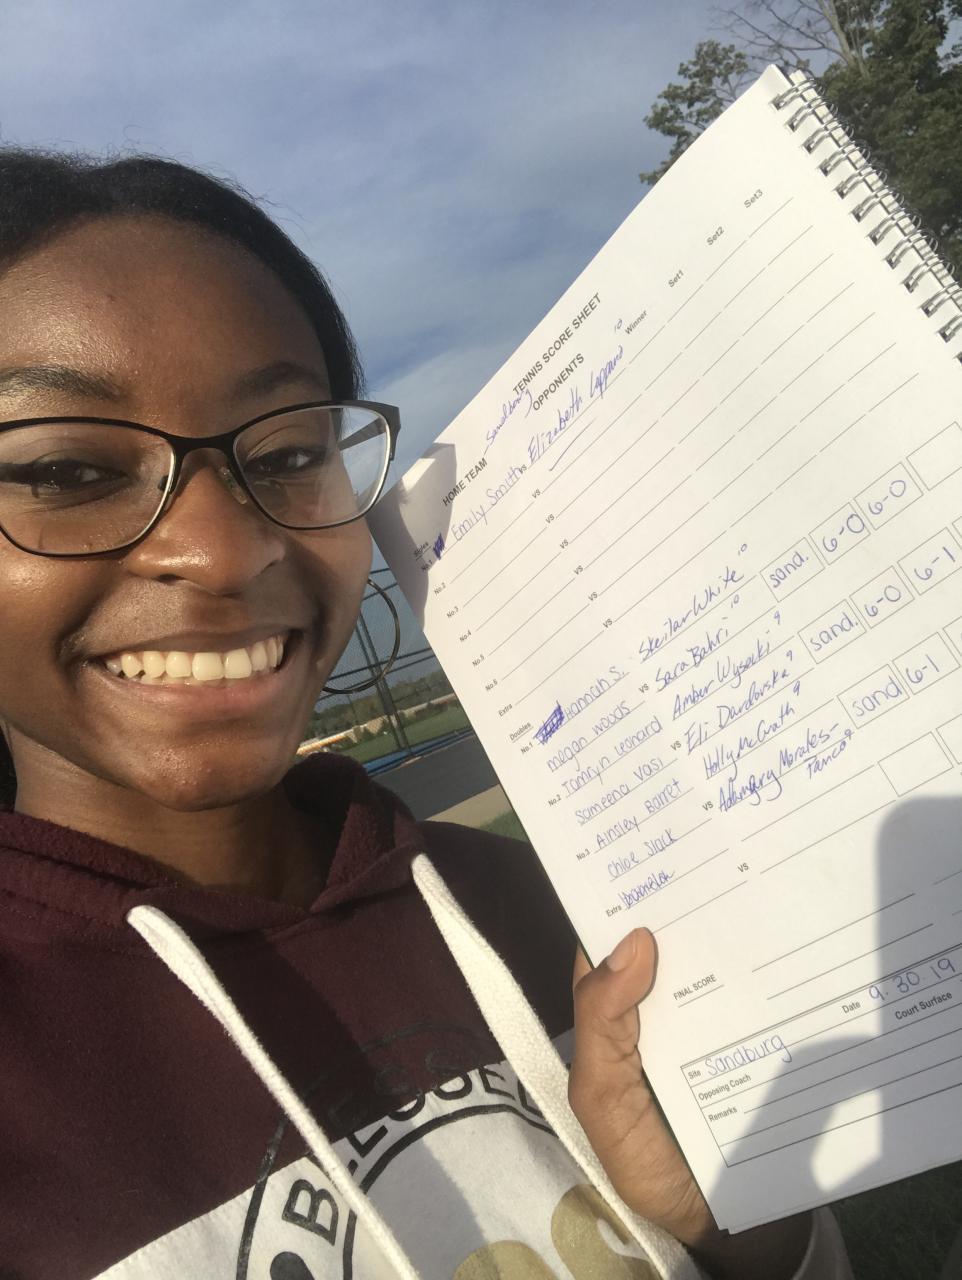 TENNIS SCORE SHEET
HOME TEAM Sandburg OPPONENTS Winner Set1 Set2 Set3
Sgles
No.1 Emily Smith vs Elizabeth 10
No.2 vs
No.3 vs
No.4 vs
No.5 vs
No.6 vs
Extra
Doubles
No.1 Hannah S. Skeilar White 10 sand. 6-0 6-0
megan woods vs Sara Bahri 10
No.2 Tamryn Leonard Amber Wysocki 9 sand. 6-0 6-1
Sameena Vasi vs Eli Dardovska 9
No.3 Ainsley Barret Holly McGrath 9 sand 6-1
Chloe Slack vs Morales-
Tanco 9
Extra vs
FINAL SCORE
Site Sandburg Date 9.30.19
Opposing Coach Court Surface
Remarks
BLESSE